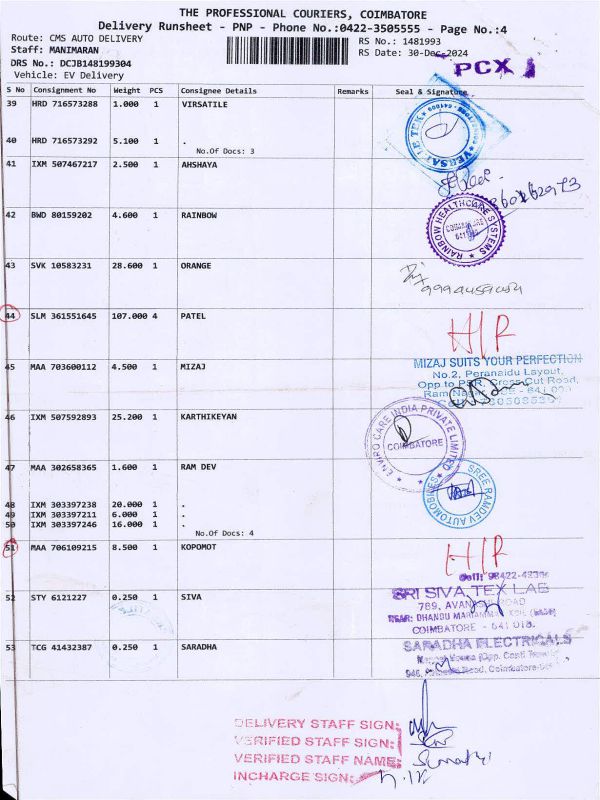 THE PROFESSIONAL COURIERS, COIMBATORE
Delivery Runsheet - PNP - Phone No.:0422-3505555 - Page No.:4
Route: CMS AUTO DELIVERY
RS No.: 1481993
Staff: MANIMARAN
RS Date: 30-Dec-2024
DRS No.: DCJB148199304
PCX
Vehicle: EV Delivery
S No Consignment No Weight PCS Consignee Details Remarks Seal & Signature
39 HRD 716573288 1.000 1 VIRSATILE
40 HRD 716573292 5.100 1 .
No.Of Docs: 3
41 IXM 507467217 2.500 1 AHSHAYA
42 BWD 80159202 4.600 1 RAINBOW
RAINBOW HEALTHCARE SYSTEMS
43 SVK 10583231 28.600 1 ORANGE
44 SLM 361551645 107.000 4 PATEL
H/R
45 MAA 703600112 4.500 1 MIZAJ
MIZAJ SUITS YOUR PERFECTION
No.2, Peranaidu Layout,
Opp.to PSR, Cross Cut Road,
46 IXM 507592893 25.200 1 KARTHIKEYAN
ENVIRO CARE INDIA PRIVATE LIMITED
COIMBATORE
47 MAA 302658365 1.600 1 RAM DEV
SREE RAMDEV AUTOMOBILES
48 IXM 303397238 20.000 1 .
49 IXM 303397211 6.000 1 .
50 IXM 303397246 16.000 1 .
No.Of Docs: 4
51 MAA 706109215 8.500 1 KOPOMOT
H/R
52 STY 6121227 0.250 1 SIVA
SRI SIVA TEX LAB
COIMBATORE - 641 018.
53 TCG 41432387 0.250 1 SARADHA
SARADHA ELECTRICALS
DELIVERY STAFF SIGN:
VERIFIED STAFF SIGN:
VERIFIED STAFF NAME:
INCHARGE SIGN: